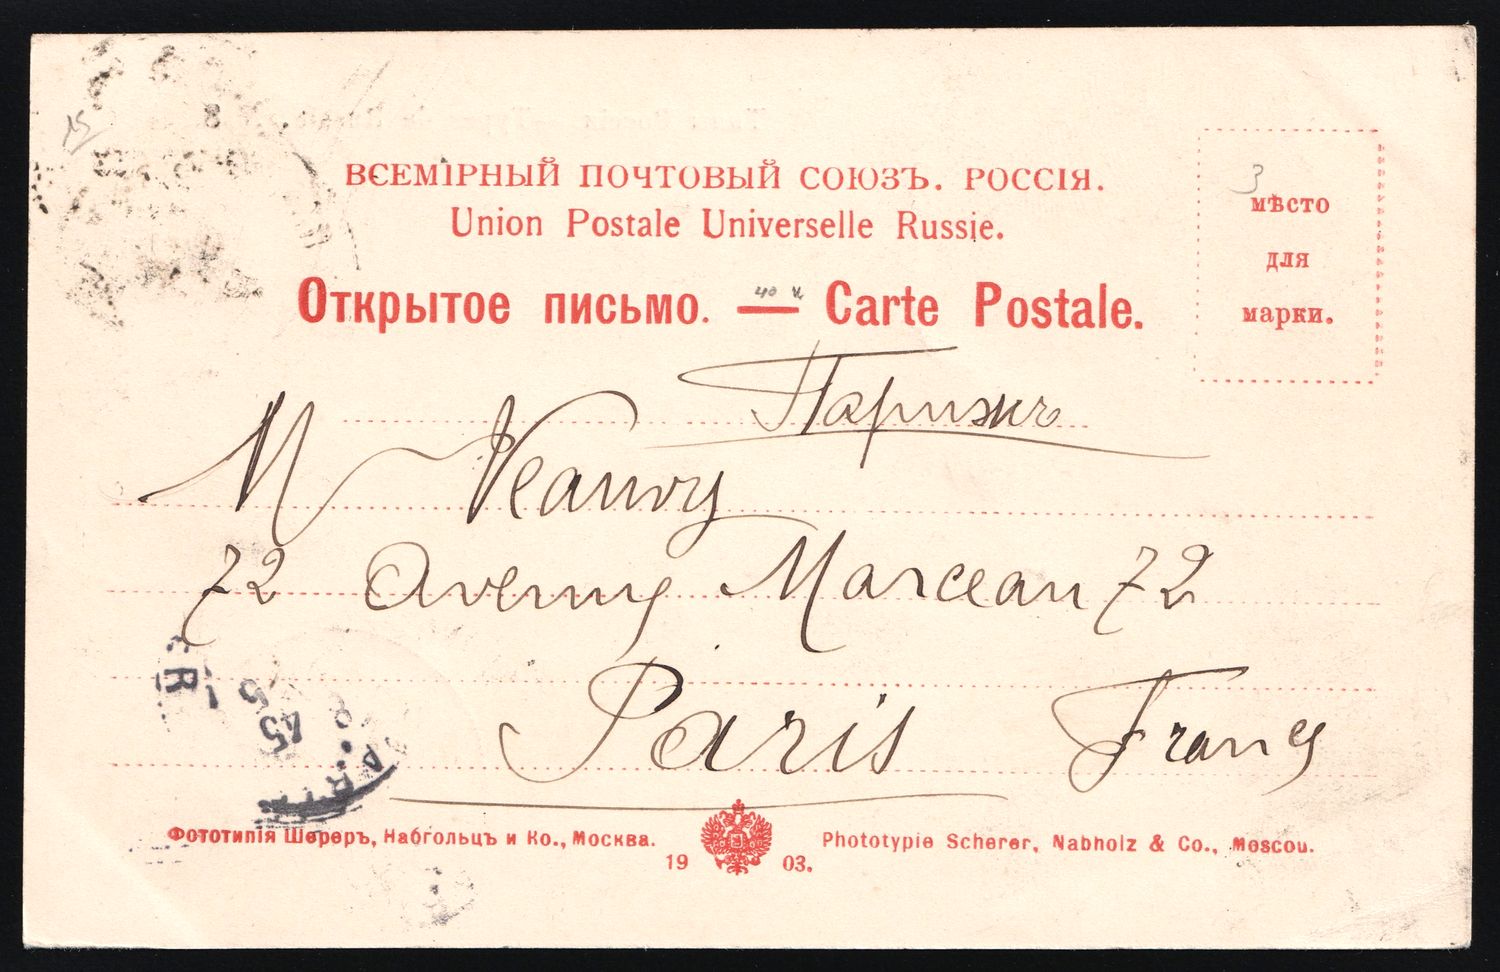 ВСЕМІРНЫЙ ПОЧТОВЫЙ СОЮЗЪ. РОССІЯ.
Union Postale Universelle Russie.
Открытое письмо. — Carte Postale.
40 к
3
мѣсто
для
марки.
Парижъ
M
72 Avenue Marceau 72
Paris France
PARIS
45
Фототипія Шереръ, Набгольцъ и Ко., Москва.
1903.
Phototypie Scherer, Nabholz & Co., Moscou.